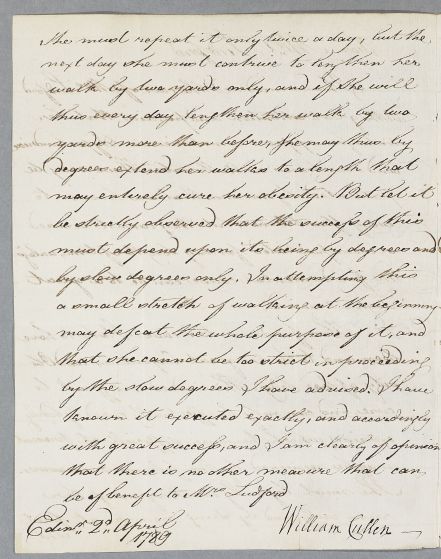 She must repeat it only twice a day, but the
next day she must contrive to lengthen her
walk by two yards only, and if she will
thus every day lengthen her walk by two
yards more than before, she may thus by
degrees extend her walks to a length that
may entirely cure her obesity. But let it
be strictly observed that the success of this
must depend upon its being by degrees and
by slow degrees only. In attempting this
a small stretch of walking at the beginning
may defeat the whole purpose of it, and
that she cannot be too strict in proceeding
by the slow degrees I have advised. I have
known it executed exactly, and accordingly
with great success, and I am clearly of opinion
that there is no other measure that can
be of benefit to Mrs. Ludford
Edinr. 2d. April
1789
William Cullen